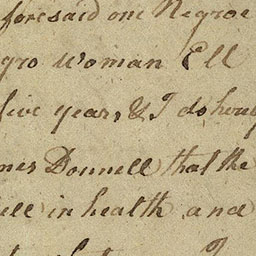 foresaid one Negroe
gro woman Ell
five years, & I do hereb
mes Donnell that the
ell in health and